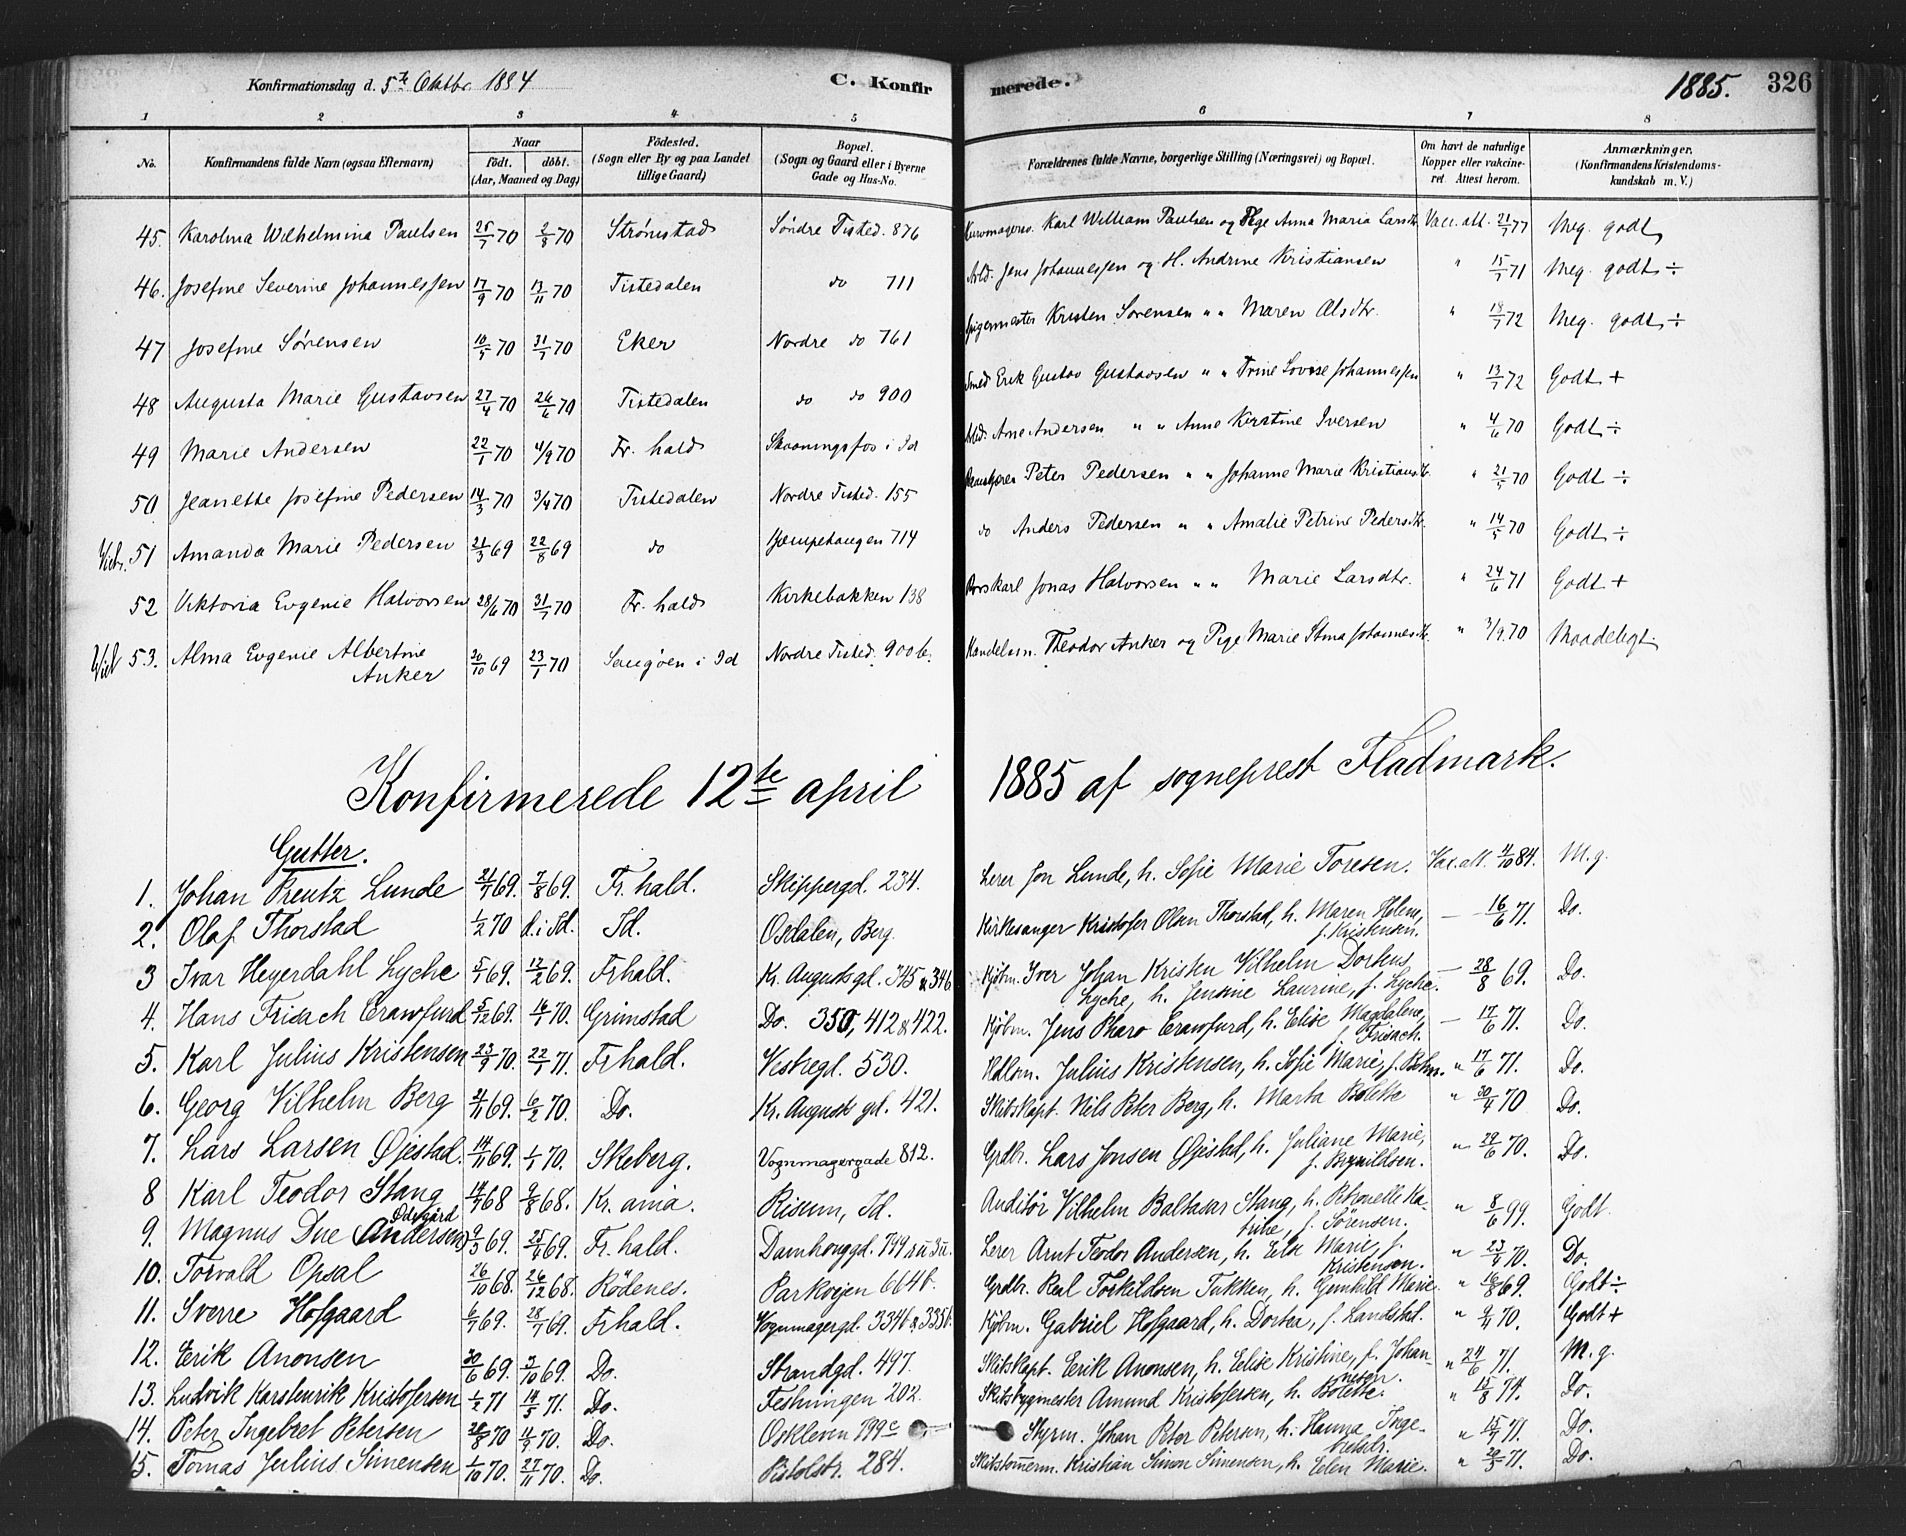 Konfirmationsdag d. 5te Oktbr. 1884 C. Konfirmerede. 1885. 326
1 2 3 4 5 6 7 8
No. Konfirmandens fulde Navn (ogsaa Efternavn) Naar født. døbt. (Aar, Maaned og Dag) Fødested. (Sogn eller By og paa Landet tillige Gaard) Bopæl. (Sogn og Gaard eller i Byerne Gade og Hus-No. Forældrenes fulde Navne, borgerlige Stilling (Næringsvei) og Bopæl. Om havt de naturlige Kopper eller vakcineret Attest herom. Anmærkninger, (Konfirmandens Kristendomskundskab m. V.)
45. Karolina Wilhelmina Paulsen 25/7 70 2/8 70 Strømstad Søndre Tisted. 876 Karl William Paulsen og Pige Anna Maria Larsdtr. Vacc. att. 21/7 77 Meg. godt
46. Josefine Severine Johannessen 17/9 70 13/11 70 Tistedalen do 711 Arbd. Jens Johannessen og H. Andrine Kristiansen " 15/7 71 Meg. godt ÷
47 Josefine Sørensen 10/5 70 31/7 70 Eker Nordre do 761 Kristen Sørensen " " Maren Olsdtr. " 18/7 72 Meg. godt ÷
48 Augusta Marie Gustavsen 27/4 70 26/6 70 Tistedalen do do 900 Smed Erik Gustav Gustavsen " " Trine Lovise Johannessen " 13/7 72 Godt +
49 Marie Andersen 22/1 70 4/9 70 Fr. hald Skaaningsfos i Id Arbd. Arne Andersen " " Anne Kirstine Iversen " 4/6 70 Godt ÷
50 Jeanette Josefine Pedersen 14/3 70 3/4 70 Tistedalen Nordre Tisted. 155 Peter Pedersen " " Johanne Marie Kristiansdtr. " 21/5 70 Godt ÷
Vidr. 51 Amanda Marie Pedersen 21/3 69 22/8 69 do Gjempehaugen 714 do Anders Pedersen " " Amalie Petrine Pedersdtr. " 14/5 70 Godt ÷
52 Viktoria Evgenie Halvorsen 28/6 70 31/7 70 Fr. hald Kirkebakken 138 Jonas Halvorsen " " Marie Larsdtr. " 24/6 71 Godt +
Vid 53. Alma Evgenie Albertine Anker 20/10 69 23/1 70 Saugøen i Id Nordre Tisted. 900 b. Handelsm. Theodor Anker og Pige Marie Stina Johannesdtr. " 3/9 70 Maadeligt
Konfirmerede 12te april 1885 af sogneprest Fladmark.
Gutter.
1. Johan Preutz Lunde 21/7 69. 7/8 69. Fr. hald. Skippergd. 234. Lærer Jon Lunde, h. Sofie Marie Toresen. Vac. att. 4/10 84. M. g.
2. Olaf Thorstad 1/2 70 d. i Id. Id. Osdalen, Berg. Kirkesanger Kristofer Olsen Thorstad, h. Maren Helene, f. Kristensen. — 16/6 71. Do.
3 Ivar Heyerdahl Lyche 5/1 69. 12/2 69. Frhald. Kr. Augusts gd. 345 & 346 Kjøbm. Iver Johan Kristen Vilhelm Dorkeus Lyche, h. Jensine Laurine, f. Lyche. — 28/8 69. Do.
4. Hans Frisach Crawfurd 5/12 69. 16/1 70. Grimstad Do. 350, 412 & 422. Kjøbm. Jens Pharo Crawfurd, h. Elise Magdalene, f. Frisach. — 17/6 71. Do.
5. Karl Julius Kristensen 23/9 70. 22/1 71. Frhald. Vestregd. 530. Hdlsm. Julius Kristensen, h. Sofie Marie, f. Bohm. " 17/6 71. Do.
6. Georg Vilhelm Berg 2/11 69. 6/2 70. Do. Kr. Augusts gd. 421. Skibskapt. Nils Peter Berg, h. Marta Bolette " 30/4 70 Do.
7. Lars Larsen Øjestad. 14/11 69. 1/1 70. Skeberg. Vognmagergade 812. Grdbr. Lars Jonsen Øjestad, h. Juliane Marie, f. Brynildsen. " 29/6 70. Do.
8 Karl Teodor Stang 14/7 68 9/8 68. Kr. ania. Risum, Id. Auditør Vilhelm Baltasar Stang, h. Petronelle Katrine, f. Sörensen. " 8/6 99. Godt.
9. Magnus Due Ödegård (Andersen) 9/3 69. 25/4 69. Fr. hald. Damhauggd. 799 Lærer Arnt Teodor Andersen, h. Elise Marie, f. Kristensen. " 23/4 70. Do.
10. Torvald Opsal 26/10 68. 26/12 68. Rödenes. Parkvejen 664 b. Grdbr. Real Torkildsen Tukken, h. Gunhild Marie " 16/8 69. Godt ÷
11. Sverre Hofgaard 6/7 69. 28/7 69. Frhald. Vognmagergd. 334 b & 335 b. Kjøbm. Gabriel Hofgaard, h. Dortea, f. Landstad. " 9/4 70. Godt +
12. Erik Anonsen 30/6 69. 3/10 69. Do. Strandgd. 497. Skibskapt. Erik Anonsen, h. Eelise Kristine, f. Johannesen. " 24/6 71. M. g.
13. Ludvik Karstenrik Kristofersen 1/2 71 14/5 71. Do. Festningen 202. Skibsbygmester Amund Kristofersen, h. Bolette. " 15/8 74. Do.
14. Peter Ingebret Petersen 28/8 70 4/9 70. Do. Oskleven 799 c Styrm. Johan Peter Petersen, h. Hanna Ingebretsdr. " 15/7 71. Do.
15. Tomas Julius Simensen 1/10 70. 27/11 70. Do. Pistolstr. 284. Skibstømerm. Kristian Simon Simensen, h. Elen Marie. " 20/3 71. Do.